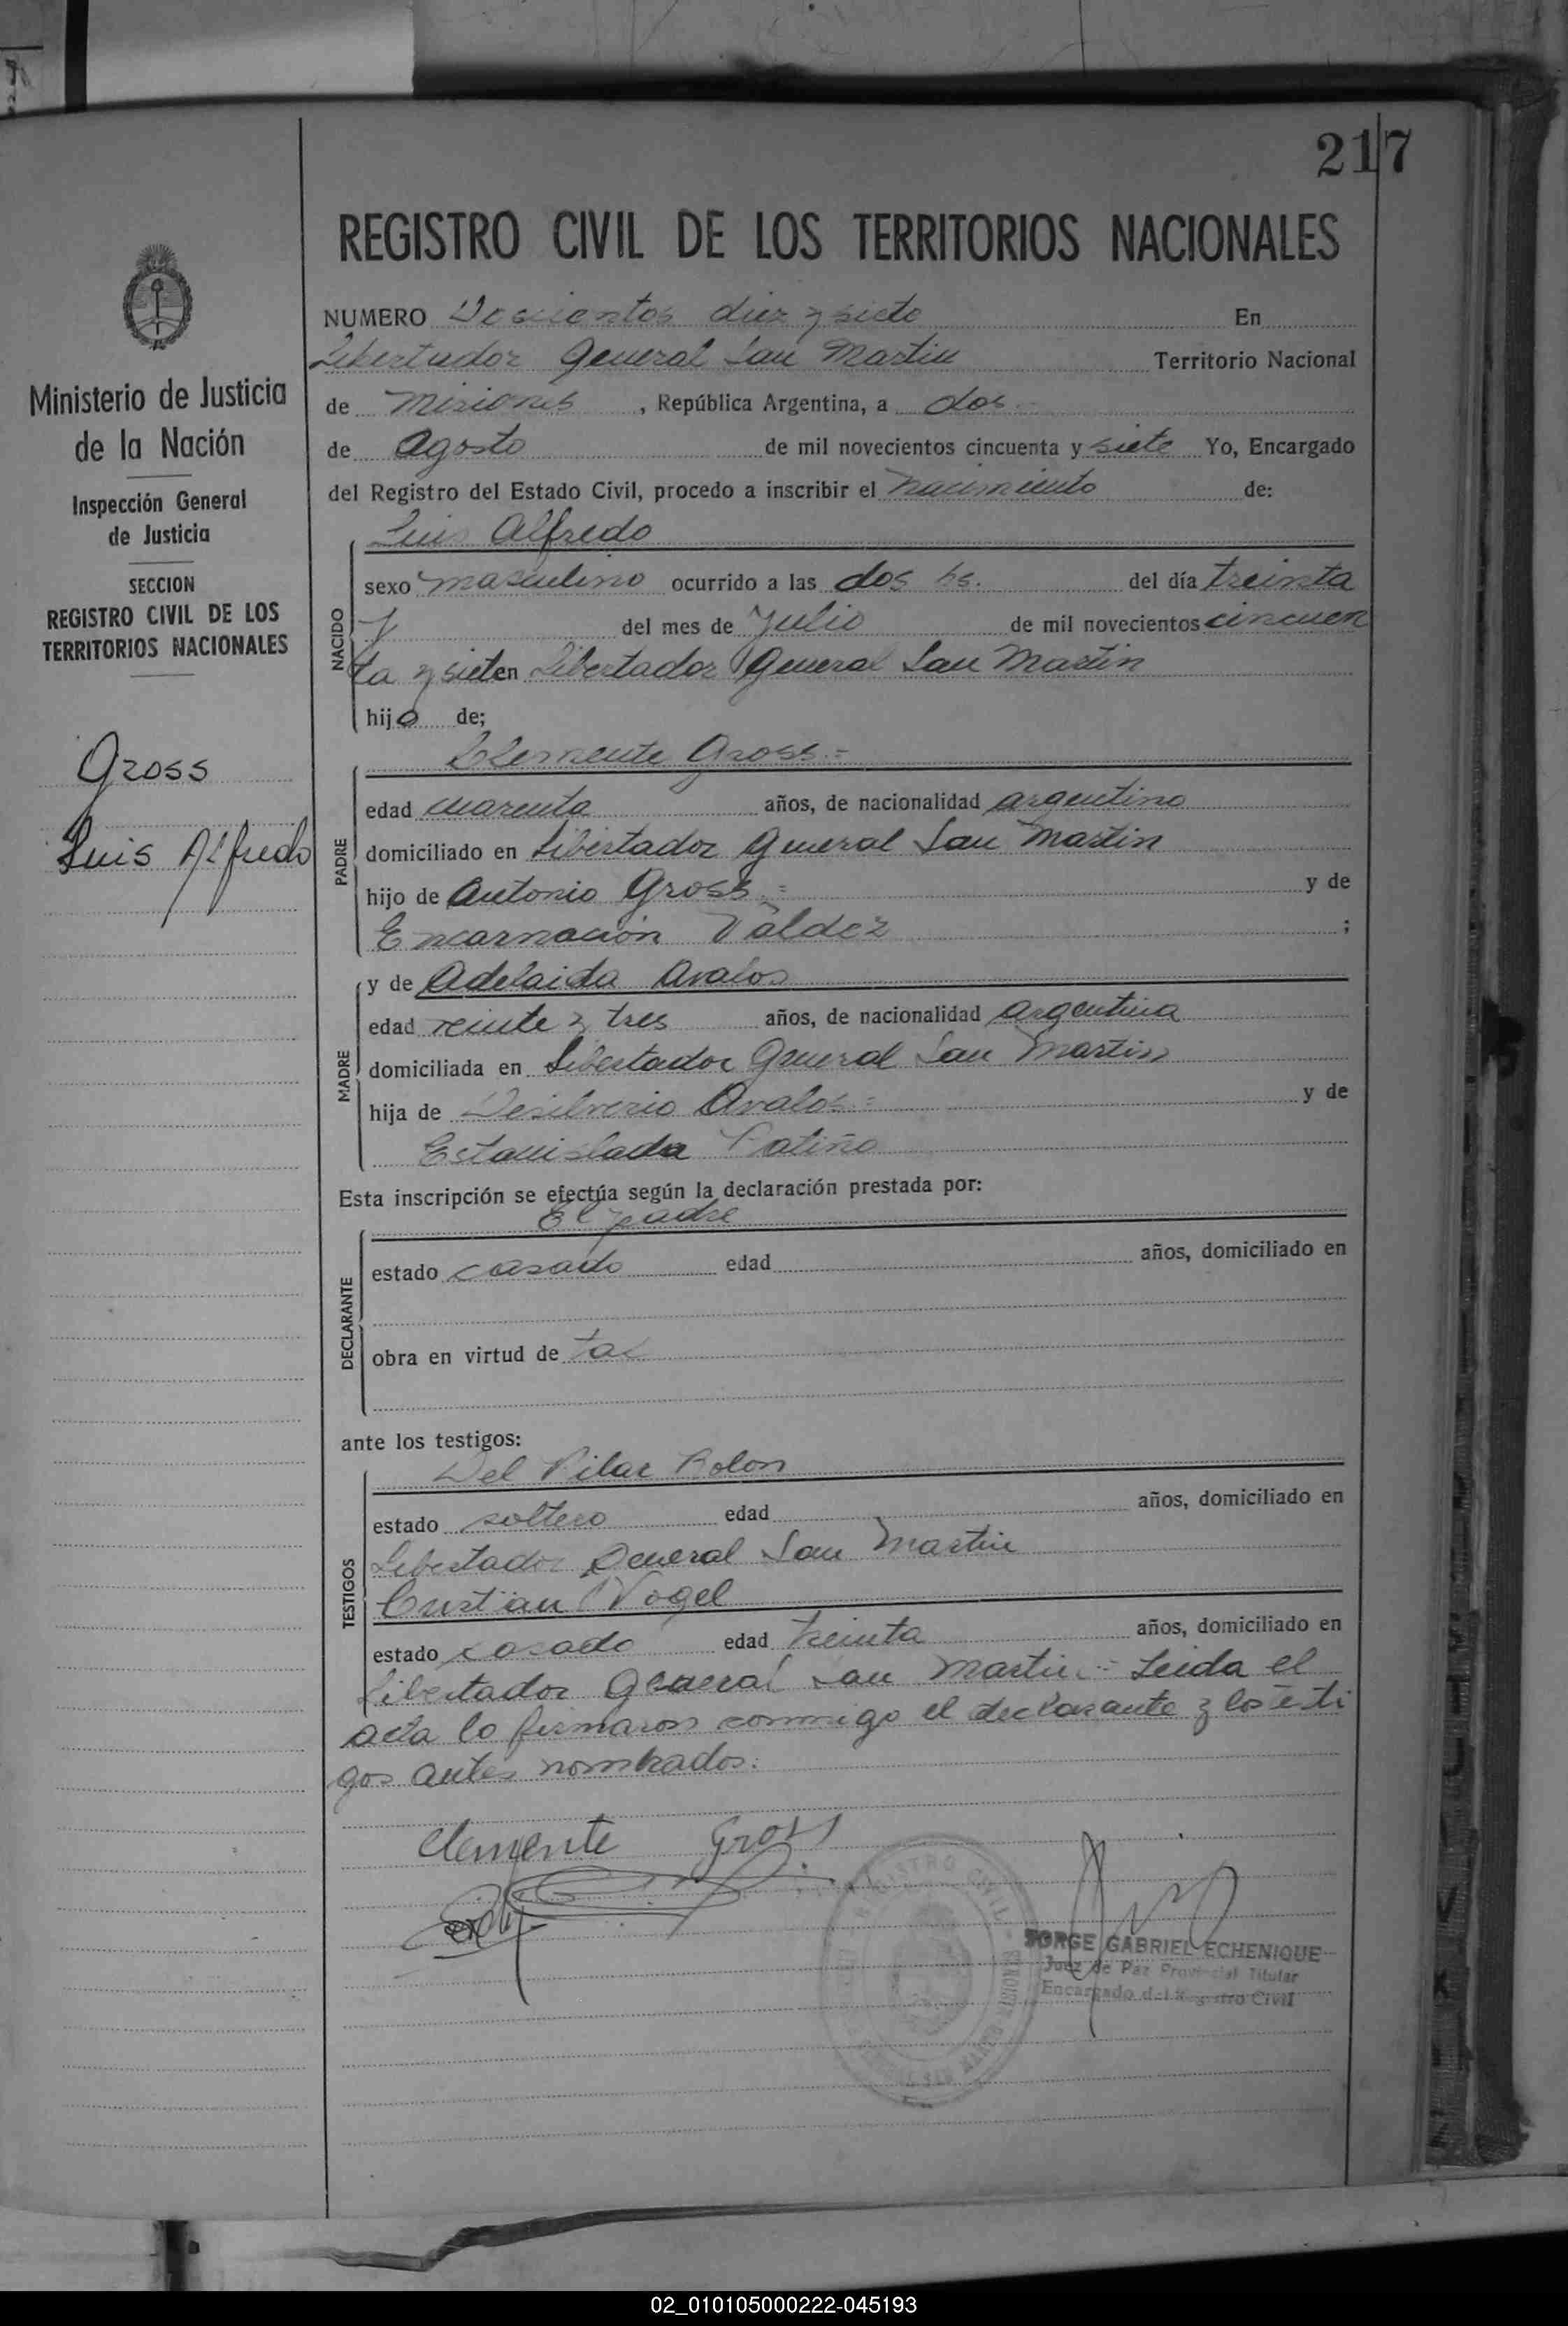 217
REGISTRO CIVIL DE LOS TERRITORIOS NACIONALES
Ministerio de Justicia
de la Nación
Inspección General
de Justicia
SECCION
REGISTRO CIVIL DE LOS
TERRITORIOS NACIONALES
Gross
Luis Alfredo
NUMERO Doscientos diez y siete En
Libertador General San Martin Territorio Nacional
de Misiones , República Argentina, a dos
de Agosto de mil novecientos cincuenta y siete Yo, Encargado
del Registro del Estado Civil, procedo a inscribir el nacimiento de:
NACIDO
Luis Alfredo
sexo masculino ocurrido a las dos hs. del día treinta
del mes de Julio de mil novecientos cincuen
ta y siete en Libertador General San Martin
hijo de;
PADRE
Clemente Gross.=
edad cuarenta años, de nacionalidad argentino
domiciliado en Libertador General San Martin
hijo de Antonio Gross.= y de
Encarnación Valdez ;
MADRE
y de Adelaida Avalos
edad veinte y tres años, de nacionalidad argentina
domiciliada en Libertador General San Martin
hija de Desilverio Avalos.= y de
Estanislada Patiño
Esta inscripción se efectúa según la declaración prestada por:
DECLARANTE
El padre
estado casado edad años, domiciliado en
obra en virtud de tal
ante los testigos:
TESTIGOS
Del Pilar Rolon
estado soltero edad años, domiciliado en
Libertador General San Martin
Cristian Vogel
estado casado edad treinta años, domiciliado en
Libertador General San Martin.= Leida el
acta lo firmaron conmigo el declarante y los testi
gos antes nombrados.
Clemente Gross
REGISTRO CIVIL
JORGE GABRIEL ECHENIQUE
Juez de Paz Provincial Titular
Encargado del Registro Civil
02_010105000222-045193